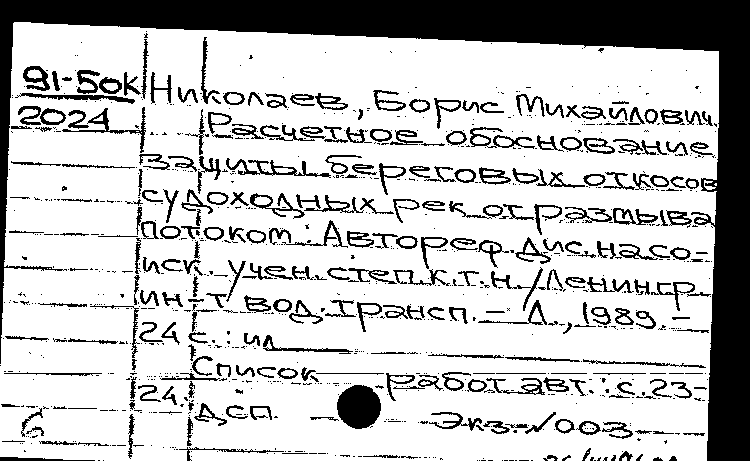 91-5ок Николаев, Борис Михайлович.
2024 Расчетное обоснование
защиты береговых откосов
судоходных рек от размыва
потоком : Автореф. дис. на со-
иск. учен. степ. к.т.н. / Ленингр.
ин-т вод. трансп. - Л., 1989. -
24 с. : ил
Список работ авт. : с. 23-
24.
Дсп. Экз. №003.
6